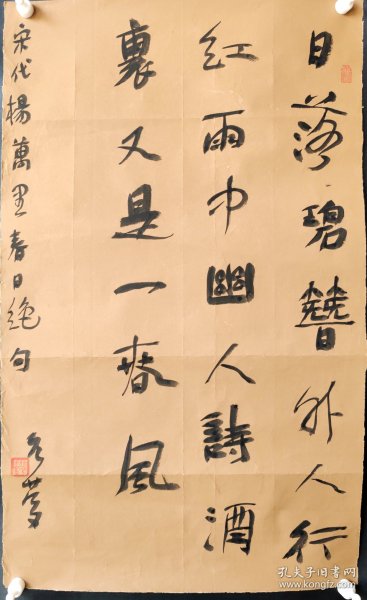 日落碧簪外人行
红雨中幽人詩酒
裏又是一春風
宋代楊萬里春日绝句
孔夫子旧书网